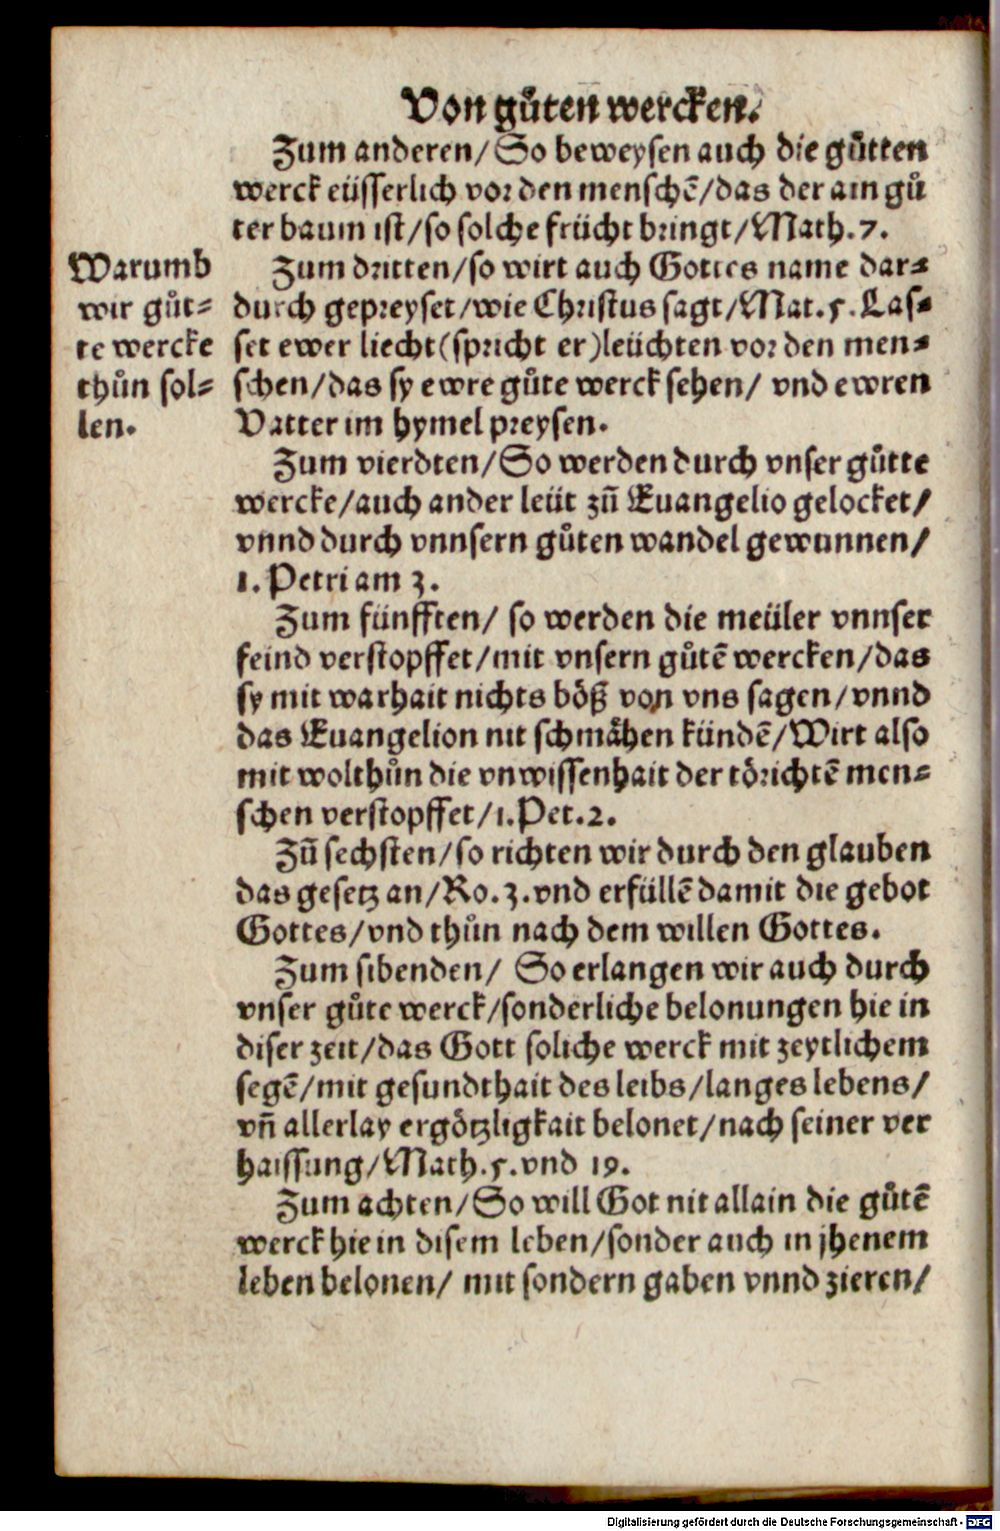 Von gůten wercken.
Zum anderen/ So beweysen auch die gůtten
werck eüsserlich vor den menschē/ das der ain gů
ter baum ist/ so solche frücht bringt/ Math. 7.
Warumb
wir gůt⸗
te wercke
thůn sol⸗
len.
Zum dritten/ so wirt auch Gottes name dar⸗
durch gepreyset/ wie Christus sagt/ Mat. 5. Las⸗
set ewer liecht (spricht er) leüchten vor den men⸗
schen/ das sy ewre gůte werck sehen/ vnd ewren
Vatter im hymel preysen.
Zum vierdten/ So werden durch vnser gůtte
wercke/ auch ander leüt zů̄ Euangelio gelocket/
vnnd durch vnnsern gůten wandel gewunnen/
1. Petri am 3.
Zum fünfften/ so werden die meüler vnnser
feind verstopffet/ mit vnsern gůtē wercken/ das
sy mit warhait nichts böß von vns sagen/ vnnd
das Euangelion nit schmåhen kündē/ Wirt also
mit wolthůn die vnwissenhait der tőrichtē men⸗
schen verstopffet/ 1. Pet. 2.
Zū sechsten/ so richten wir durch den glauben
das gesetz an/ Ro. 3. vnd erfüllē damit die gebot
Gottes/ vnd thůn nach dem willen Gottes.
Zum sibenden/ So erlangen wir auch durch
vnser gůte werck/ sonderliche belonungen hie in
diser zeit/ das Gott soliche werck mit zeytlichem
segē/ mit gesundthait des leibs/ langes lebens/
vn̄ allerlay ergötzligkait belonet/ nach seiner ver
haissung/ Math. 5. vnd 19.
Zum achten/ So will Got nit allain die gůtē
werck hie in disem leben/ sonder auch in jhenem
leben belonen/ mit sondern gaben vnnd zieren/
Digitalisierung gefördert durch die Deutsche Forschungsgemeinschaft - DFG